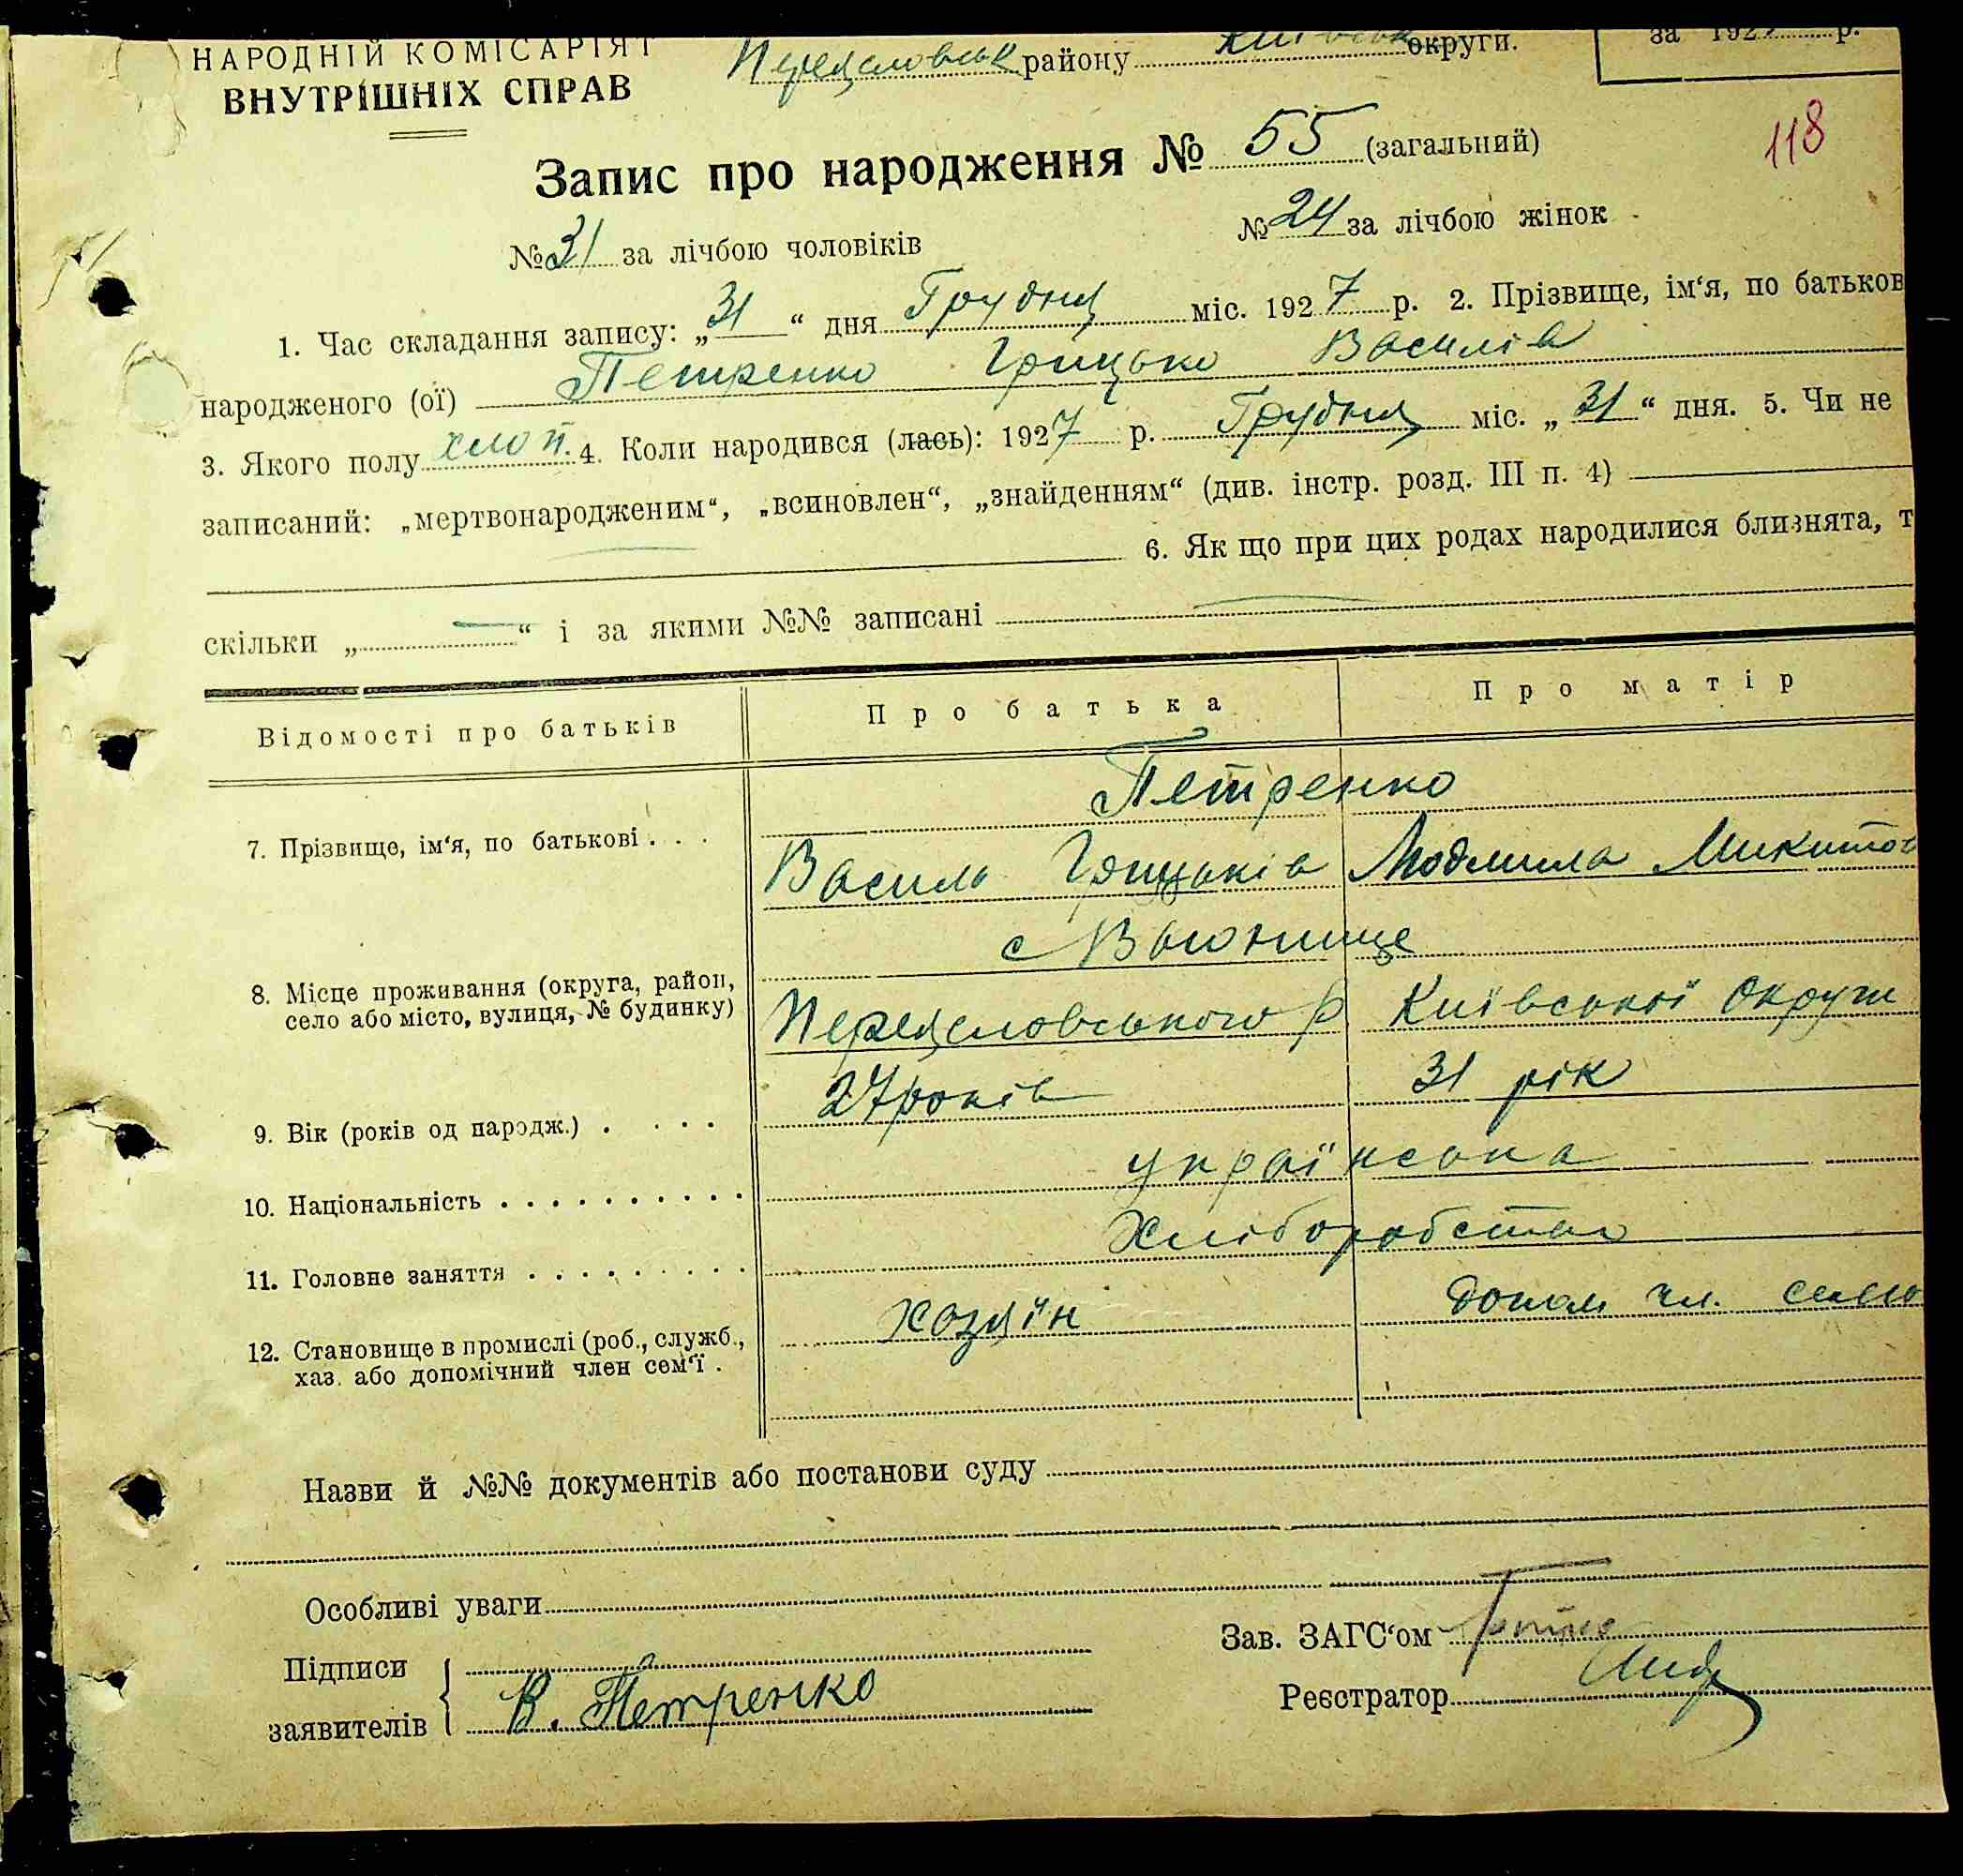 НАРОДНІЙ КОМІСАРІЯТ
ВНУТРІШНІХ СПРАВ
Переяславськ району Київськ округи.
за 1927 р.
118
Запис про народження № 55 (загальний)
№ 31 за лічбою чоловіків № 24 за лічбою жінок
1. Час складання запису: „31“ дня Грудня міс. 1927 р. 2. Прізвище, ім‘я, по батьков
народженого (ої) Петренко Грицько Василів
3. Якого полу хлоп. 4. Коли народився (лась): 1927 р. Грудня міс. „31“ дня. 5. Чи не
записаний: „мертвонародженим“, „всиновлен“, „знайденням“ (див. інстр. розд. III п. 4)
6. Як що при цих родах народилися близнята, т
скільки „ — “ і за якими №№ записані —
Відомості про батьків Про батька Про матір
Петренко
7. Прізвище, ім‘я, по батькові . . . Василь Грицьків Людмила Микитов
с Вьюнище
8. Місце проживання (округа, район,
село або місто, вулиця, № будинку) Переяславського р Київської Округи
9. Вік (років од народж.) . . . . 27 років 31 рік
10. Національність . . . . . . . . . . українська
11. Головне заняття . . . . . . . . . Хліборобство
12. Становище в промислі (роб., служб.,
хаз. або допомічний член сем‘ї . хозяїн допом чл. сем
Назви й №№ документів або постанови суду
Особливі уваги
Зав. ЗАГС‘ом
Підписи
заявителів В. Петренко
Реєстратор